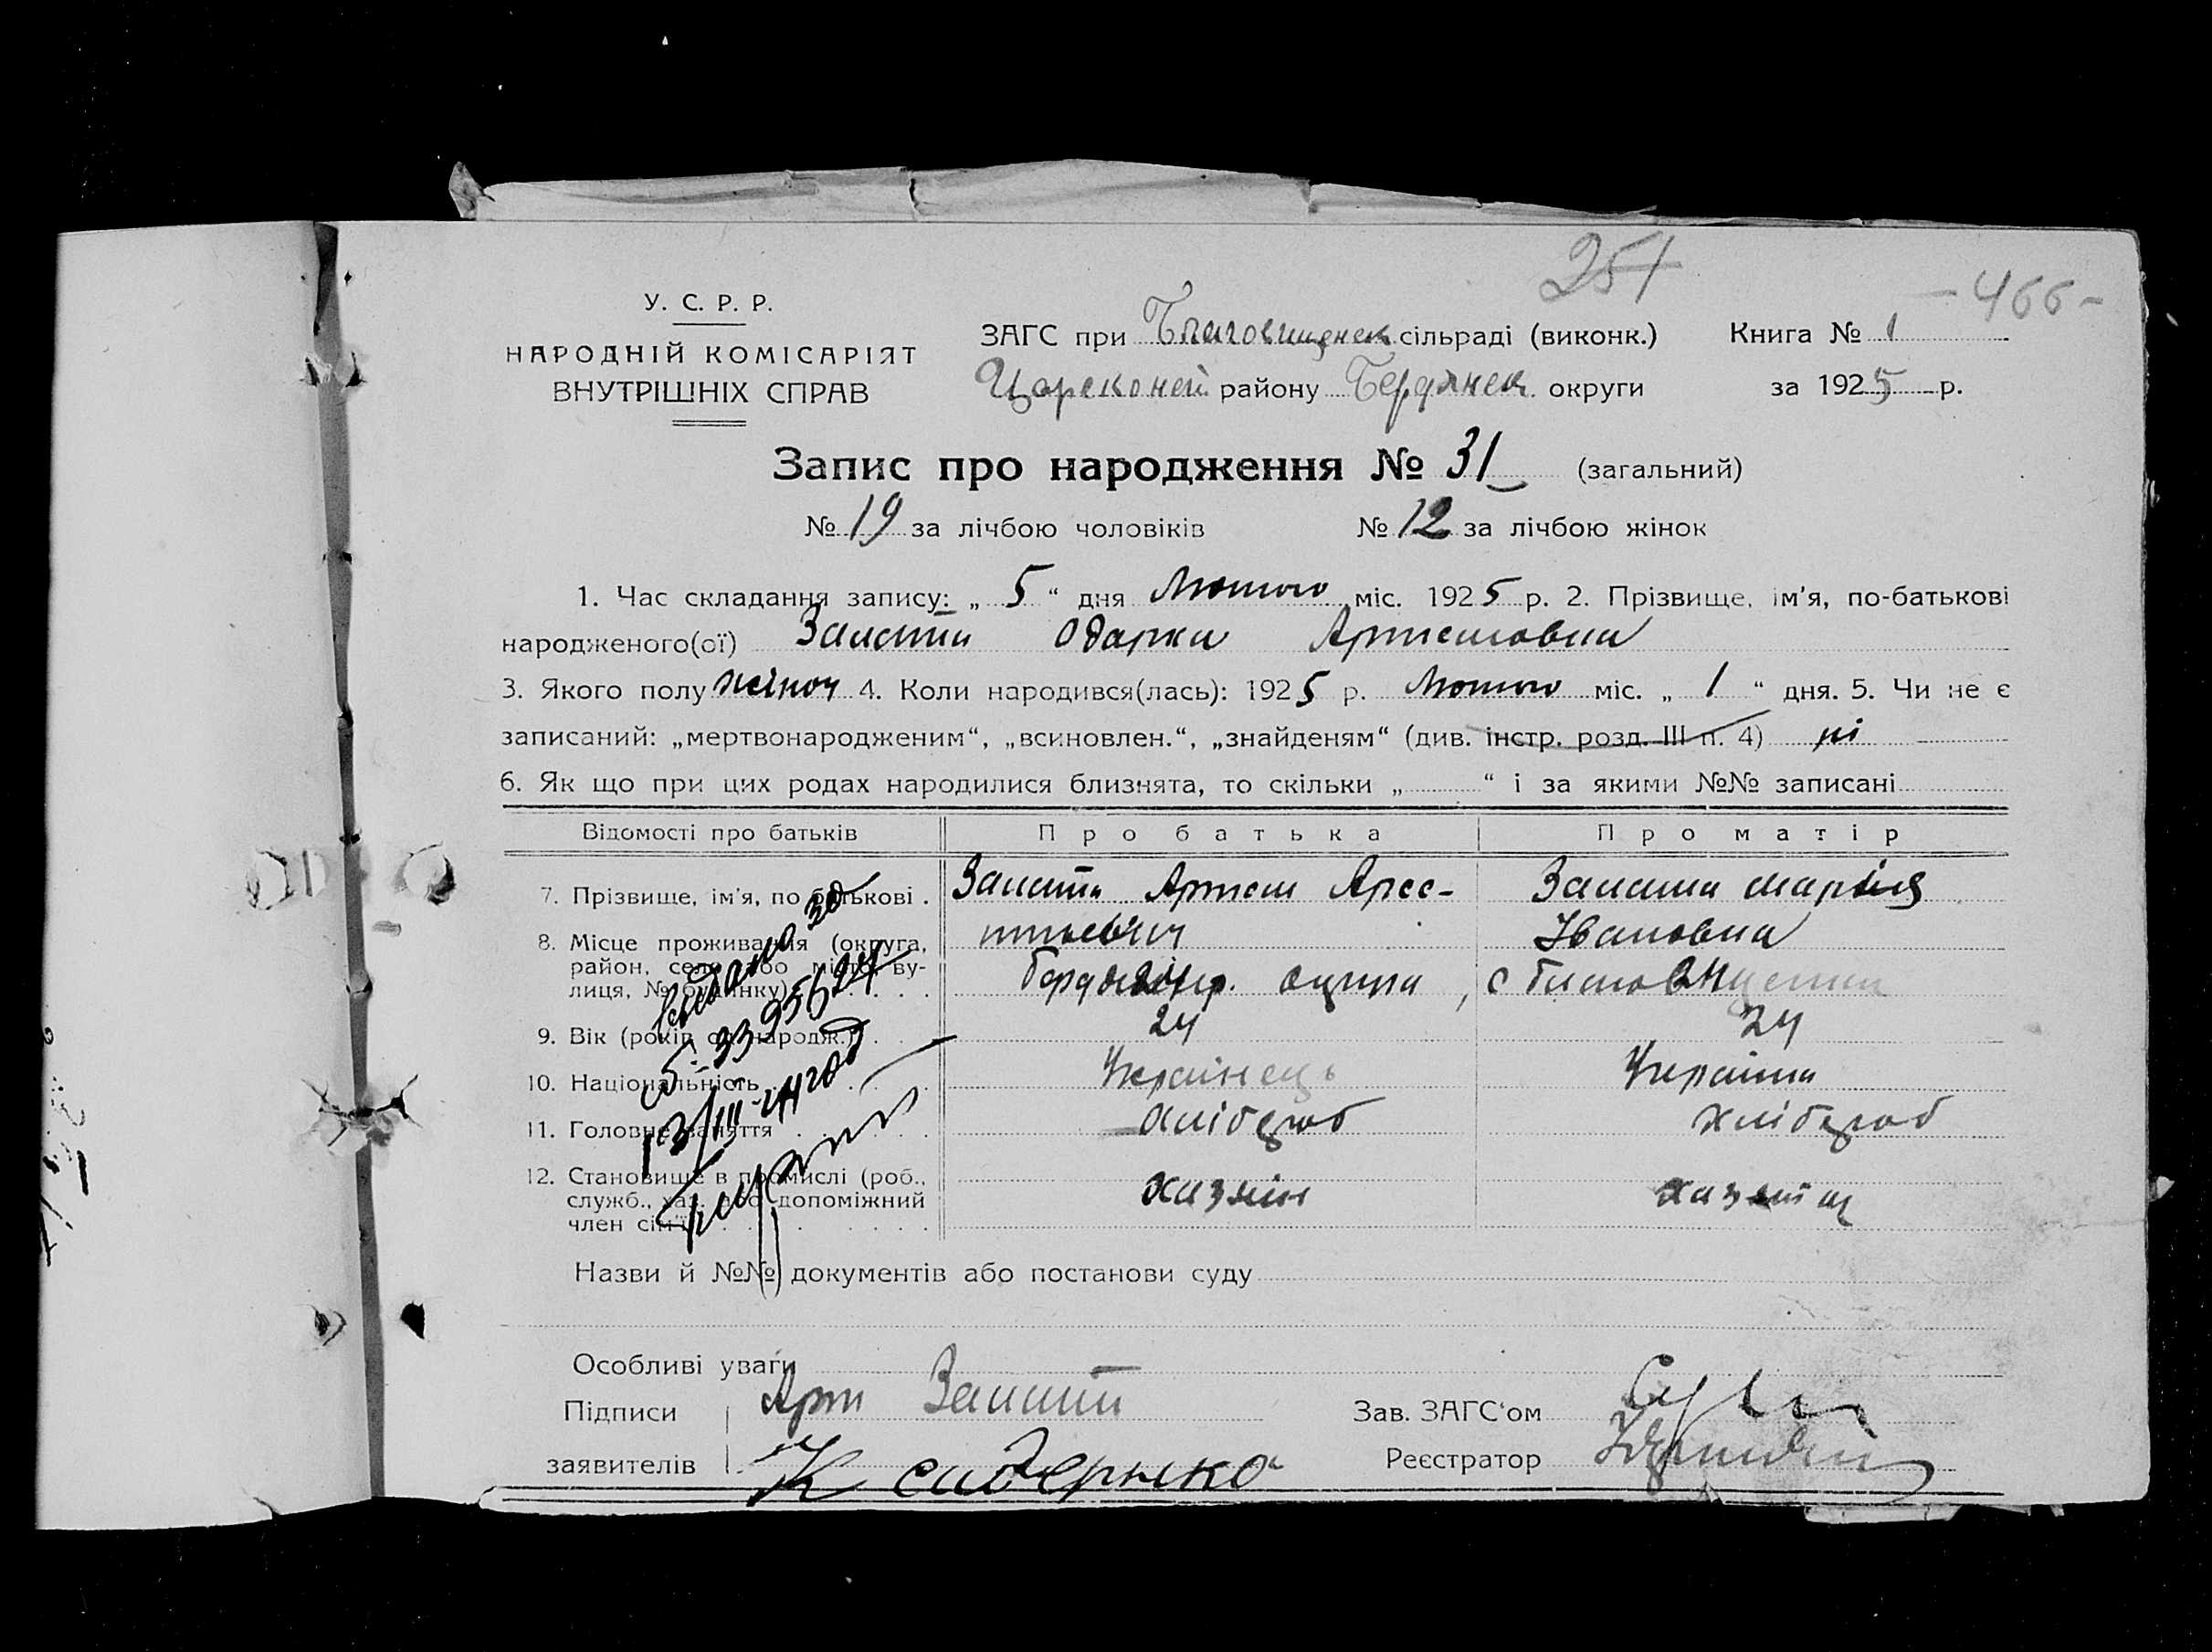 251
- 466 -
У. С. Р. Р.
НАРОДНІЙ КОМІСАРІЯТ
ВНУТРІШНІХ СПРАВ
ЗАГС при Благовищенск сільраді (виконк.) Книга № 1
району Бердянск округи за 1925 р.
Запис про народження № 31 (загальний)
№ 19 за лічбою чоловіків № 12 за лічбою жінок
1. Час складання запису: „ 5 “ дня Лютого міс. 1925 р. 2. Прізвище, ім'я, по-батькові
народженого(ої) Одарка Артемовна
3. Якого полу жіноч 4. Коли народився(лась): 1925 р. Лютого міс. „ 1 “ дня. 5. Чи не є
записаний: „мертвонародженим“, „всиновлен.“, „знайденям“ (див. інстр. розд. III п. 4) ні
6. Як що при цих родах народилися близнята, то скільки „ “ і за якими №№ записані
Відомості про батьків Про батька Про матір
7. Прізвище, ім'я, по батькові . Артем Марія
Івановна
8. Місце проживання (округа,
район, село або місто, ву-
лиця, № будинку) округа , с
9. Вік (років од народж.) . 24 24
10. Національність Українець Українка
11. Головне заняття хлібороб хлібороб
12. Становище в промислі (роб.,
служб., хаз. або допоміжний
член сім'ї) хазяїн хазяйка
видано
33 95624
13/III-41 год
Назви й №№ документів або постанови суду
Особливі уваги
Підписи Арт Зав. ЗАГС'ом
заявителів К Сидоренко Реєстратор